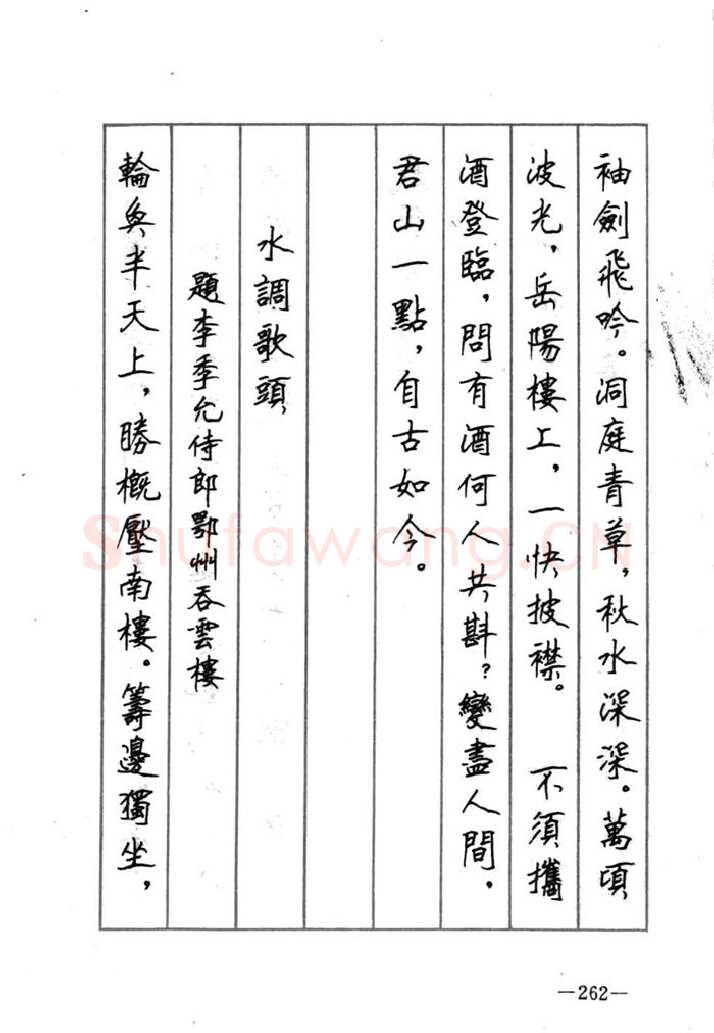 袖劍飛吟。洞庭青草，秋水深深。萬頃
波光，岳陽樓上，一快披襟。 不須攜
酒登臨，問有酒何人共斟？變盡人間，
君山一點，自古如今。
水調歌頭
題李季允侍郎鄂州吞雲樓
輪奐半天上，勝概壓南樓。籌邊獨坐，
—262—
Shufawang.CN